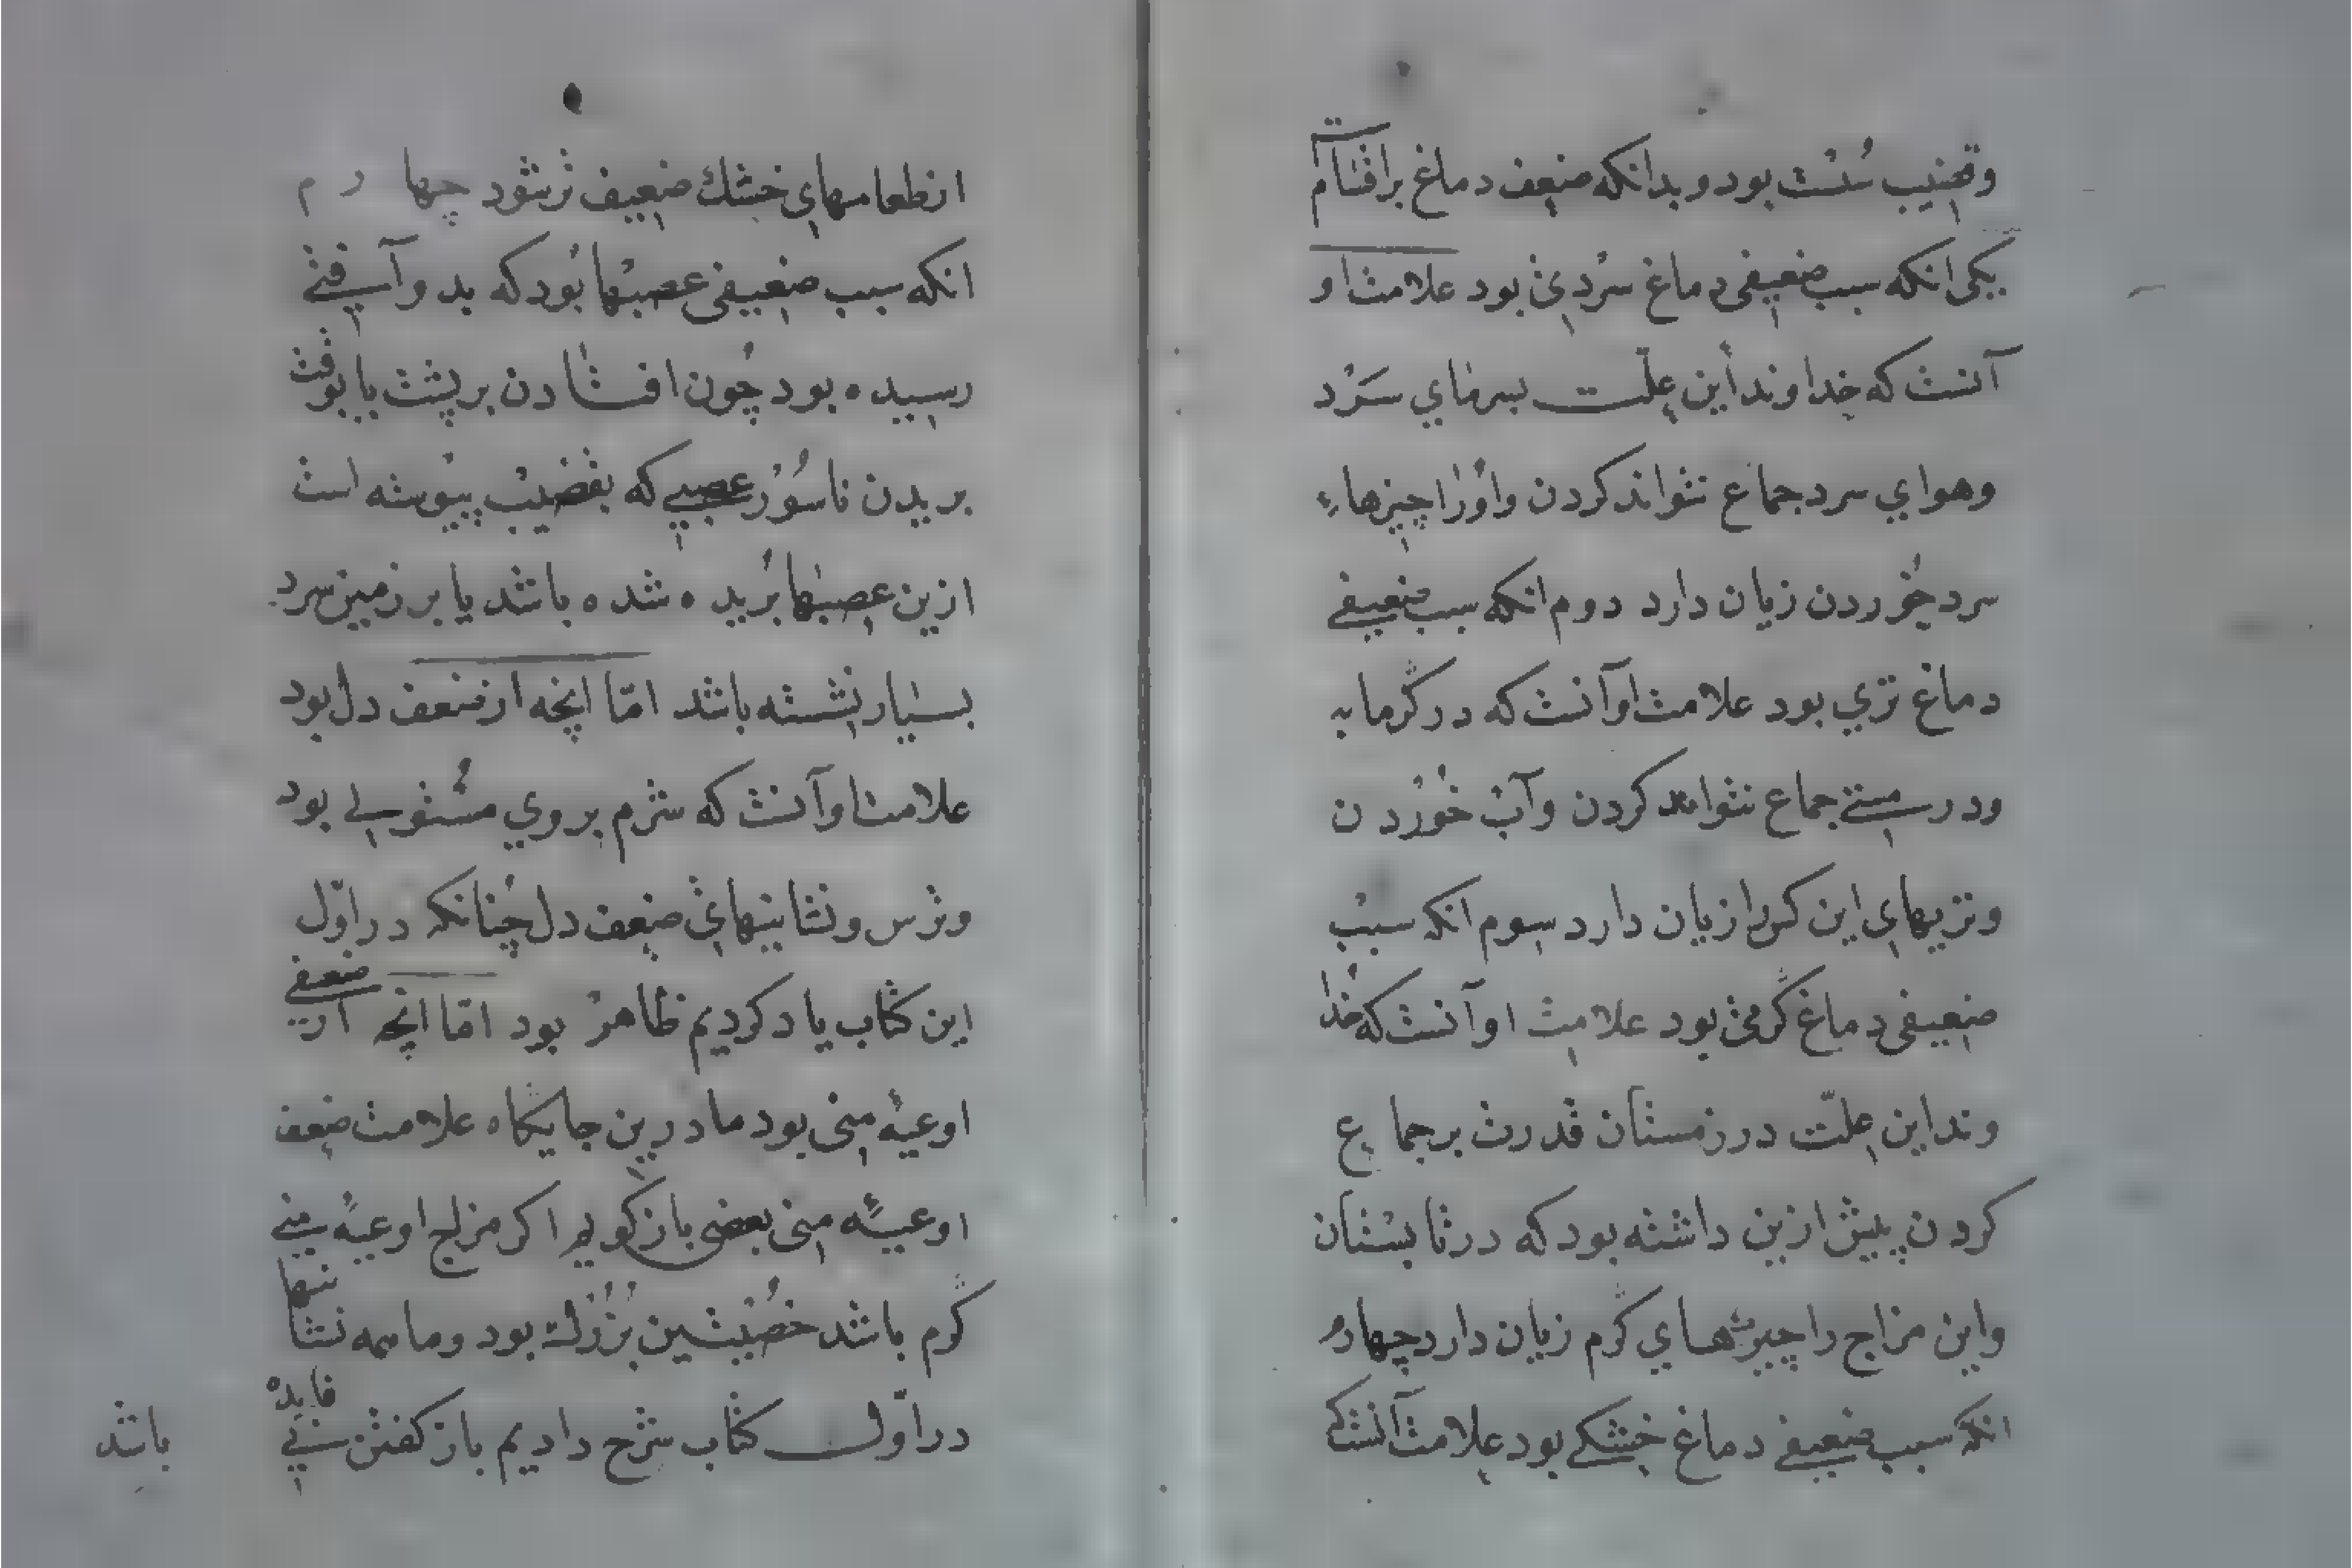 وقضیب سُسْت بود و بدانکه ضعف دماغ بر اقسام
یکی انکه سبب ضعیفی دماغ سرْدیئ بود علامت او
آنست که خداوند این علّت بسرمای سَرْد
وهوای سرد جماع نتواند کردن واوُرا چیزهاء
سرد خوردن زیان دارد دوم انکه سبب ضعیفی
دماغ تری بود علامت او آنست که در گرمابه
ودر مستی جماع نتواند کردن وآبْ خُورْدن
وتریهای این کس را زیان دارد سوم انکه سببْ
ضعیفی دماغ گرمئ بود علامت او آنست که خُدا
وند این علّت در زمستان قدرت بر جماع
کردن پیش ازین داشته بود که در تابسْتان
واین مزاج را چیزهای گرم زیان دارد چهارم
انکه سبب ضعیفی دماغ خشکی بود علامت آنست که
از طعامهای خشك ضعیف تر شود چهارم
انکه سبب ضعیفی عصبْها بُود که بدو آسیفتی
رسیده بود چُون افتادن بر پشت یا بوقت
بریدن ناسُوْر عصبی که بقضیبْ پیوسته است
ازین عصبها بُریده شده باشد یا بر زمین سرد
بسیار نشسته باشد امّا انچه از ضعف دل بود
علامت او آنست که شرم بر وی مسْتولی بود
وترس ونشانیهایئ ضعف دل چُنانکه در اوّل
این کتاب یاد کردیم ظاهرْ بود امّا انچه از ضعیفی
اوعیهٔ منی بود ما درین جایگاه علامت ضعف
اوعیهٔ منی بعضی باز گوییم اکر مزاج اوعیهٔ منی
گرم باشد خُصیْتین بُزُرك بود وما همه نشانیها
در اوّل کتاب شرْح دادیم باز کفتن بی فایده
باشد